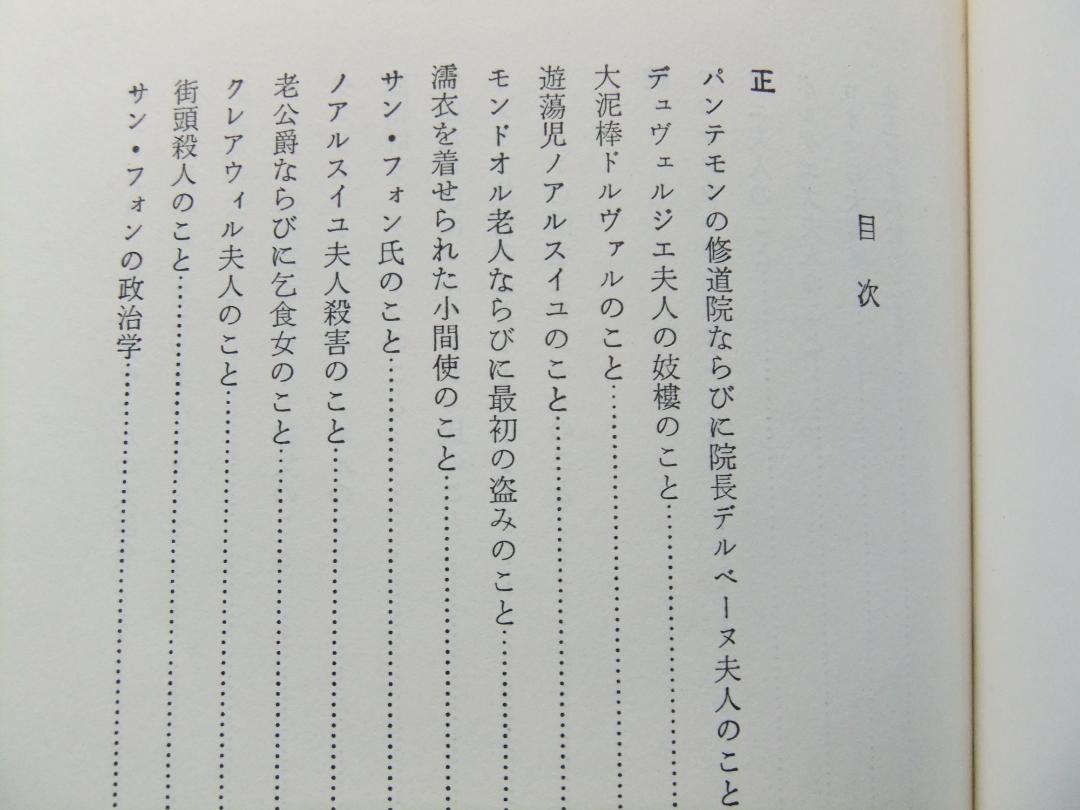 目次
正
パンテモンの修道院ならびに院長デルベーヌ夫人のこと
デュヴェルジエ夫人の妓樓のこと
大泥棒ドルヴァルのこと
遊蕩児ノアルスイユのこと
モンドオル老人ならびに最初の盗みのこと
濡衣を着せられた小間使のこと
サン・フォン氏のこと
ノアルスイユ夫人殺害のこと
老公爵ならびに乞食女のこと
クレアウィル夫人のこと
街頭殺人のこと
サン・フォンの政治学